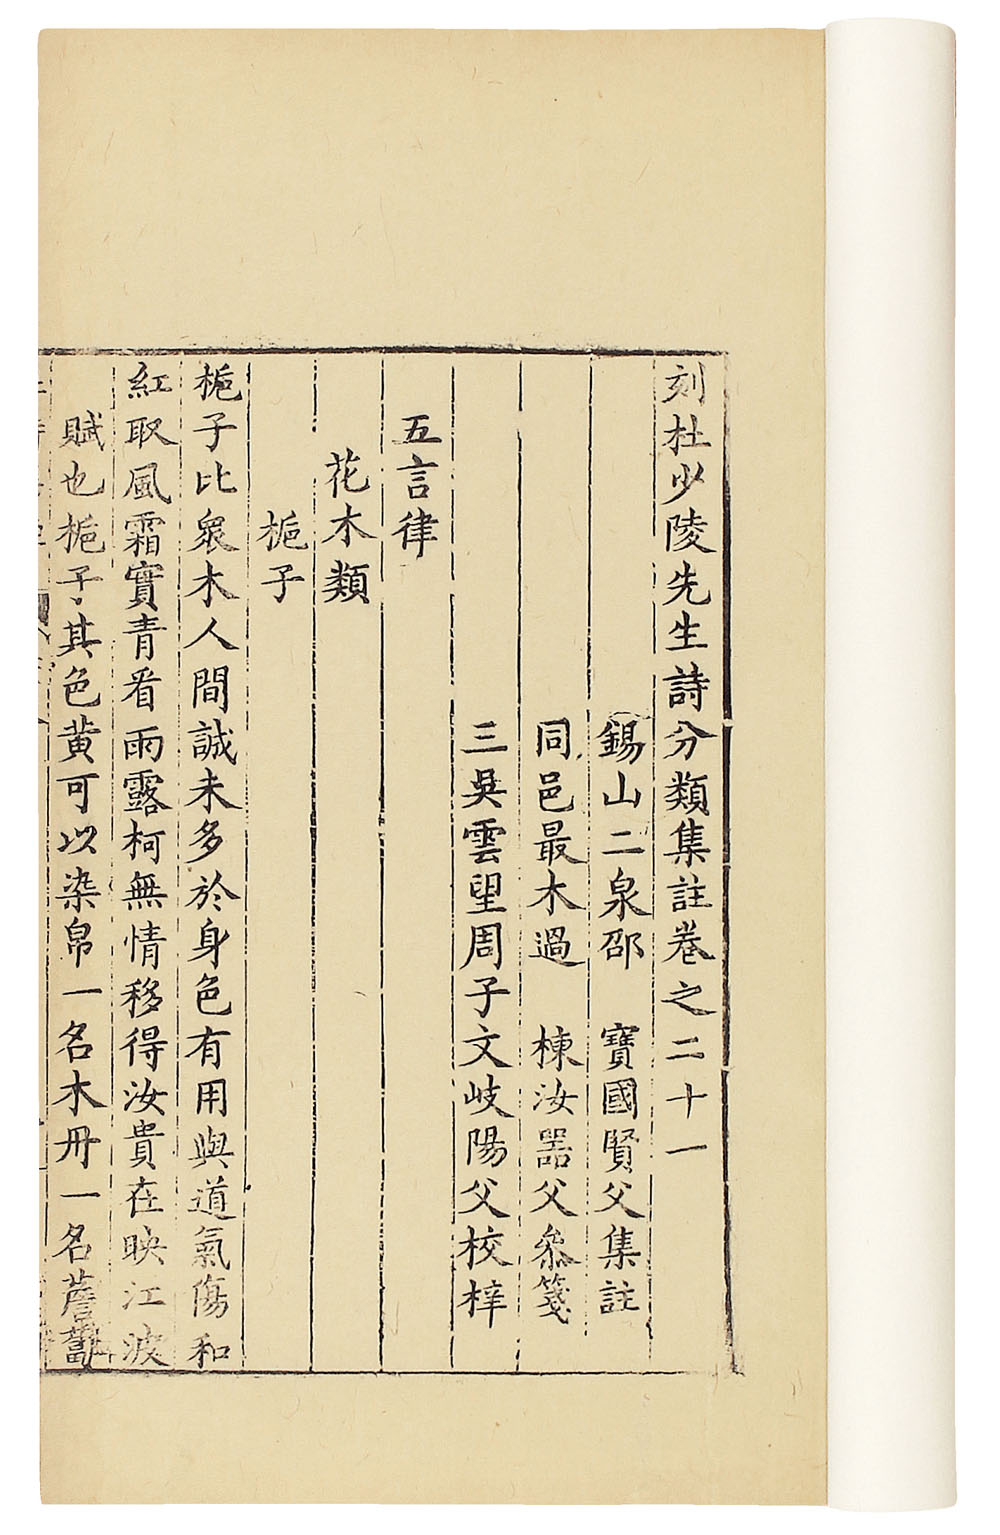 刻杜少陵先生詩分類集註卷之二十一
錫山二泉邵　寶國賢父集註
同邑最木過　棟汝器父叅箋
三吳雲望周子文岐陽父校梓
五言律
花木類
梔子
梔子比衆木人間誠未多於身色有用與道氣傷和
紅取風霜實青看雨露柯無情移得汝貴在映江波
賦也梔子其色黄可以染帛一名木丹一名薝蔔